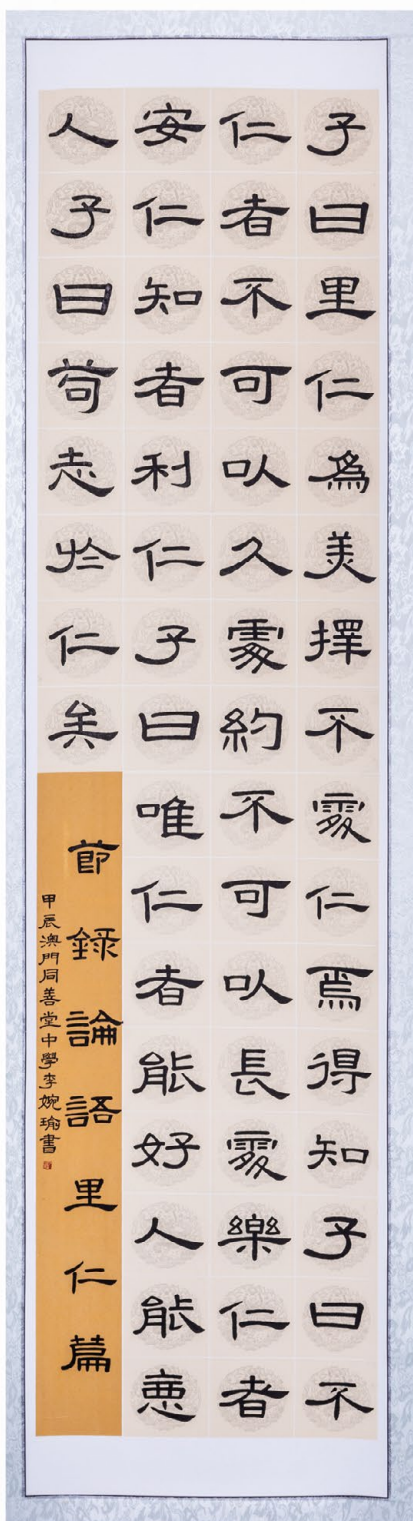 子曰里仁為美擇不處仁焉得知子曰不
仁者不可以久處約不可以長處樂仁者
安仁知者利仁子曰唯仁者能好人能惡
人子曰苟志於仁矣
節錄論語里仁篇
甲辰澳門同善堂中學李婉瑜書